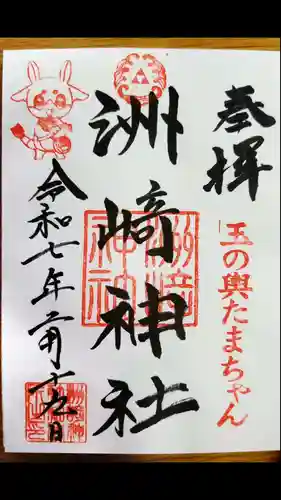 奉拝
「玉の輿たまちゃん
洲崎神社
洲崎神社
令和七年二月十九日